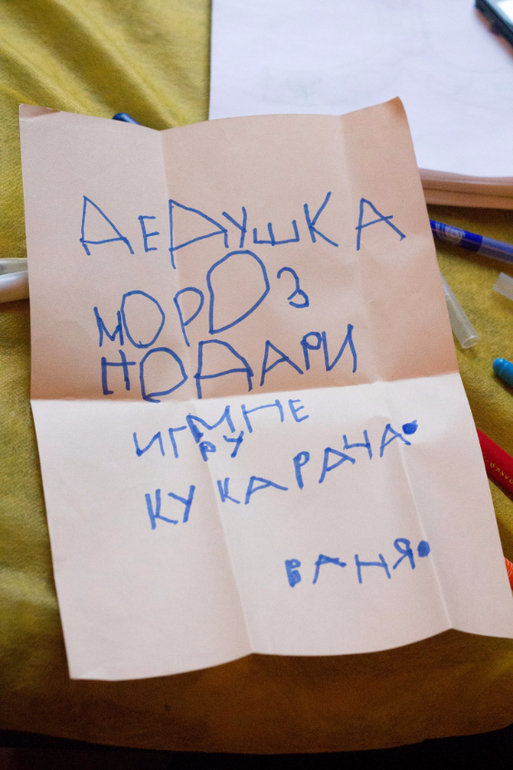 ДЕДУШКА
МОРОЗ
ПОДАРИ
МНЕ
ИГРУ
КУКАРАЧА.
ВАНЯ.